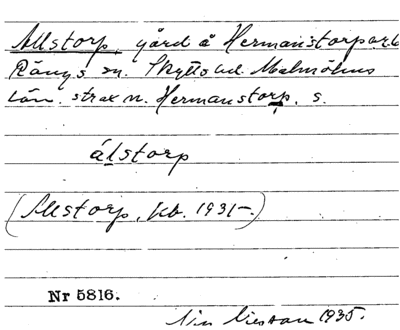 Allstorp, gård å Hermanstorp
Rängs sn. Skytts hd. Malmöhus
län. strax n. Hermanstorp. s.
álstorp
(Allstorp, kb. 1931–)
Nr 5816.
1935.